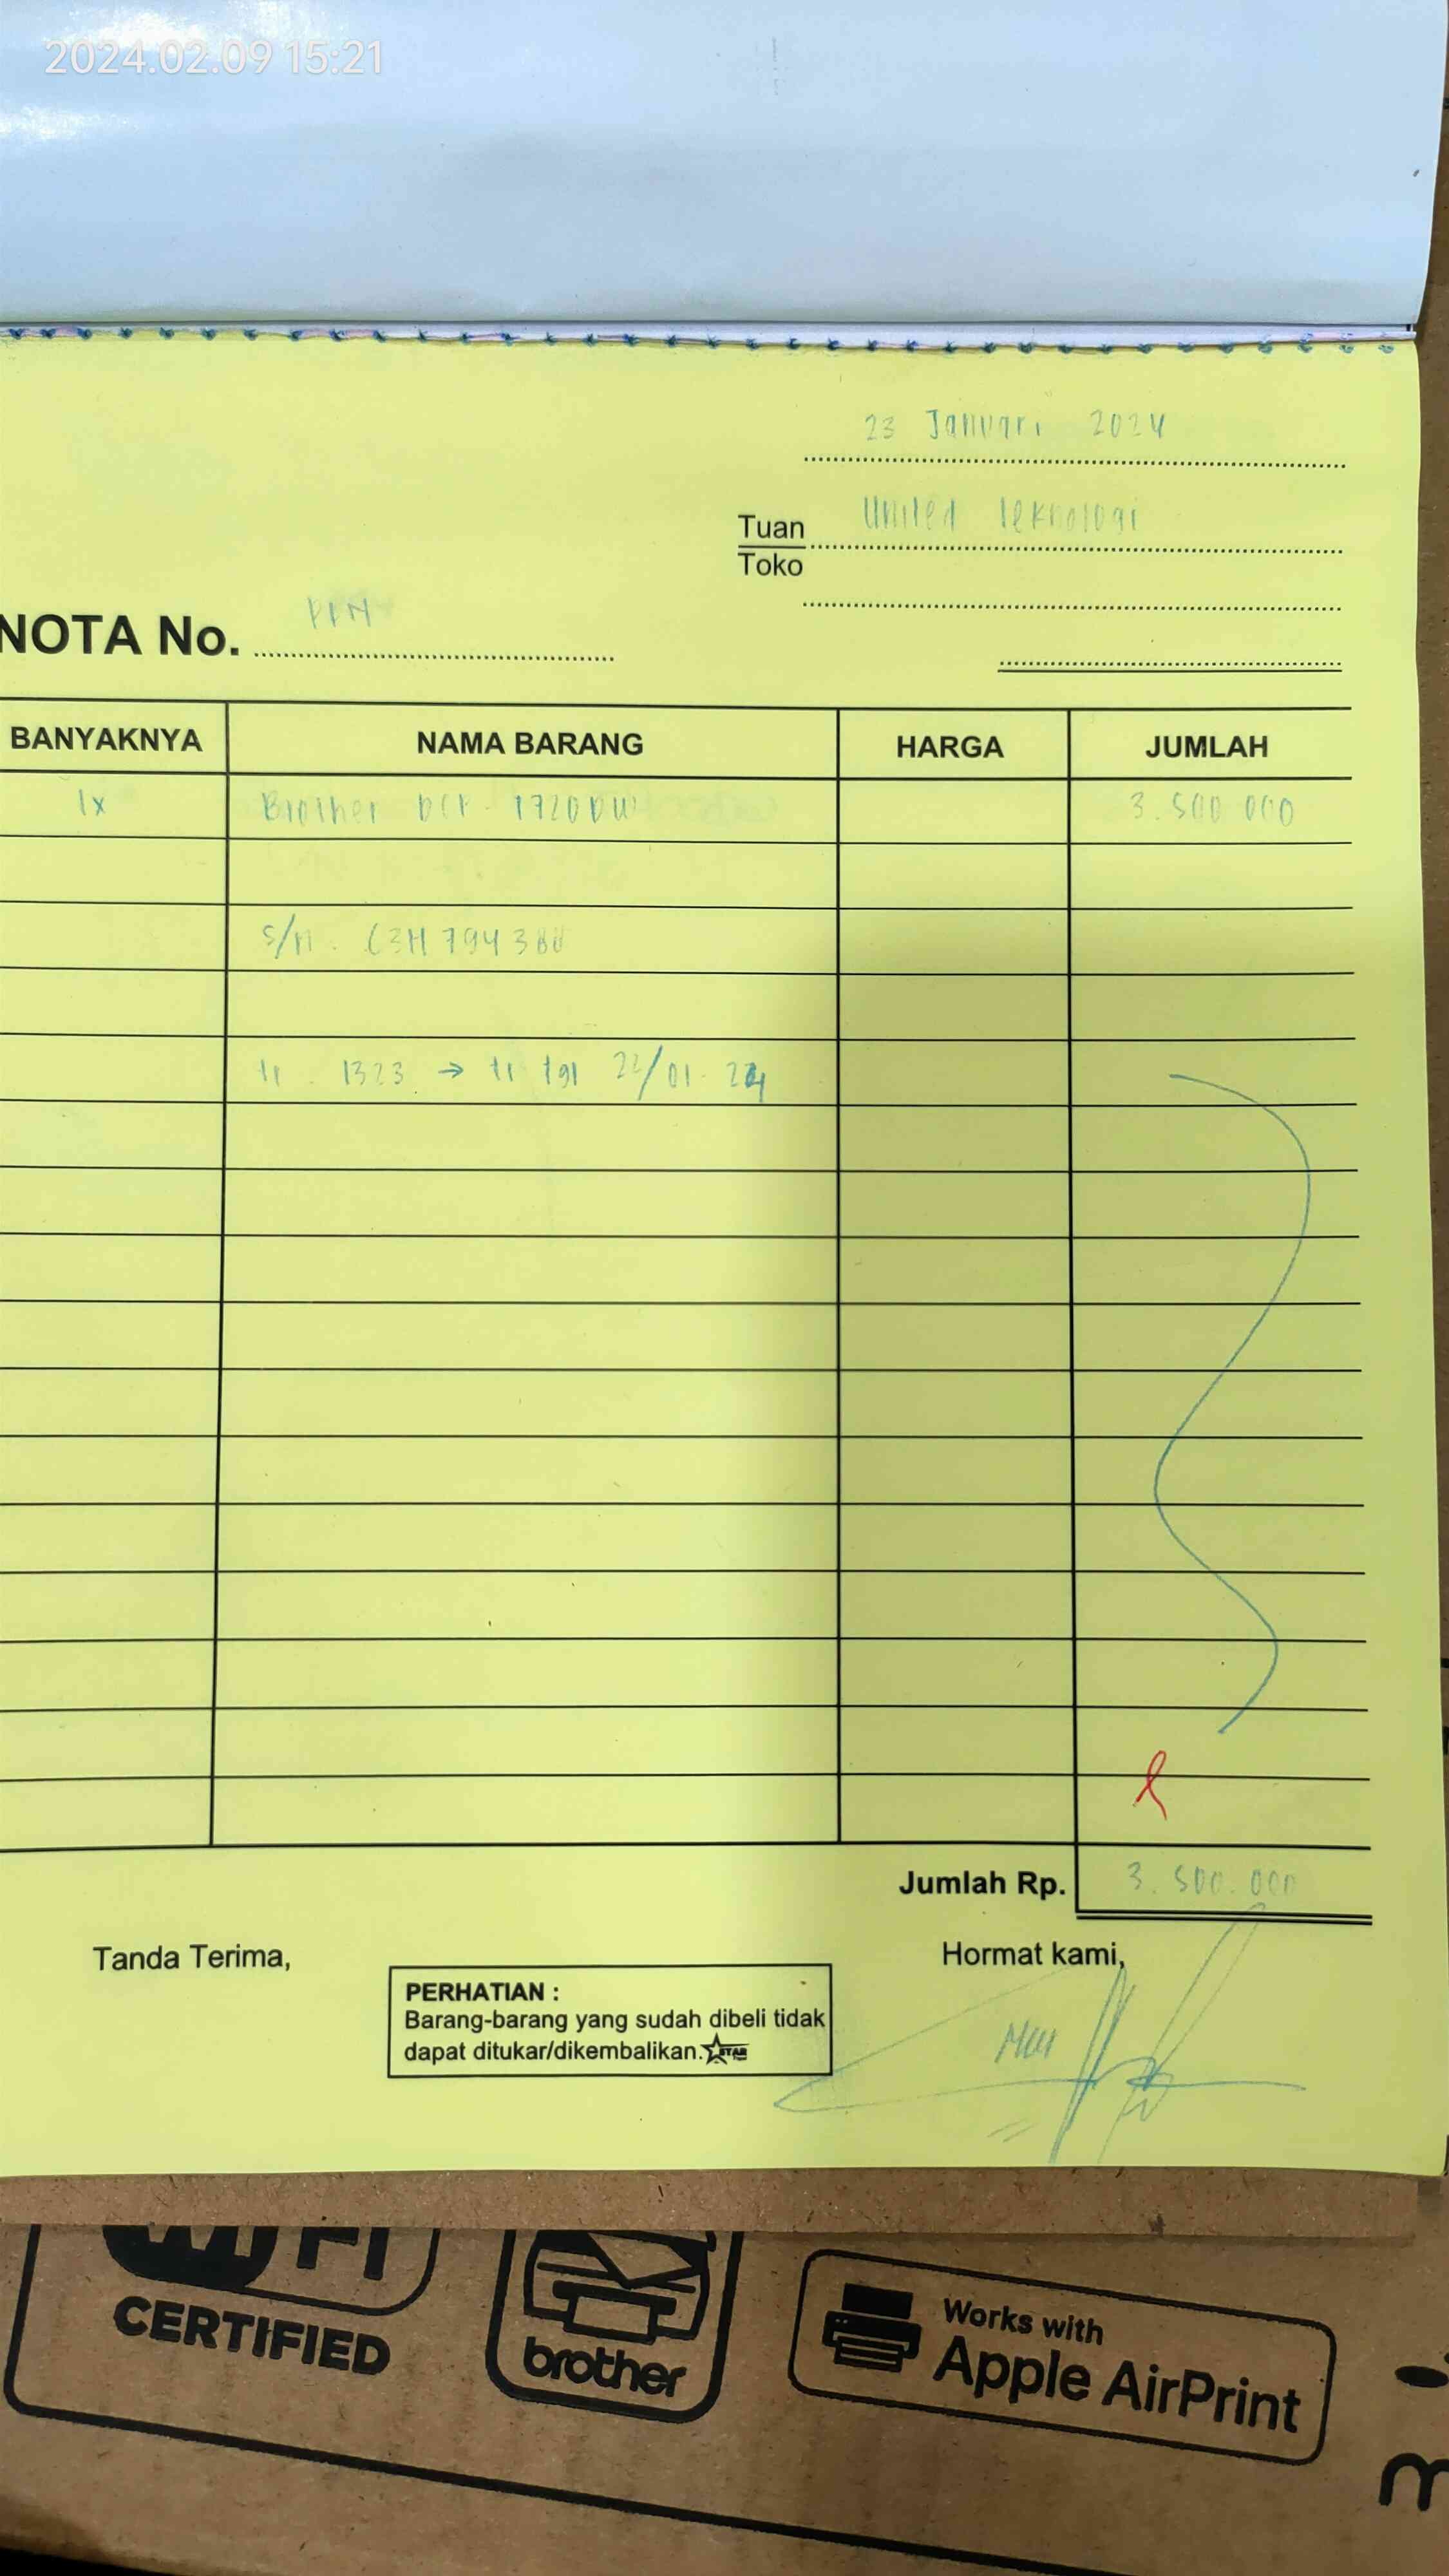 2024.02.09 15:21
23 Januari 2024
Tuan United Teknologi
Toko
NOTA No.
BANYAKNYA NAMA BARANG HARGA JUMLAH
1x Brother DCP-T720DW 3.500 000
S/N. 
tt. 1323 → tt tgl 22/01-24
Jumlah Rp. 3.500.000
Tanda Terima,
Hormat kami,
PERHATIAN :
Barang-barang yang sudah dibeli tidak
dapat ditukar/dikembalikan. STAR
CERTIFIED
brother
Works with
Apple AirPrint